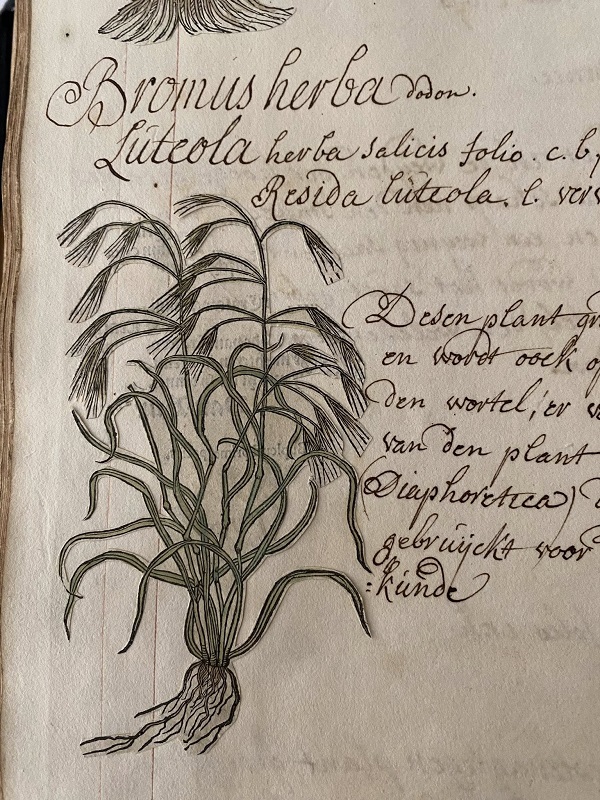 Bromus herba dodon.
Lúteola herba salicis folio. c. b.
Resida lúteola. l.
Desen plant
en wordt oock
den wortel, er
van den plant
(Diaphoretica)
gebruijckt voor
:kúnde